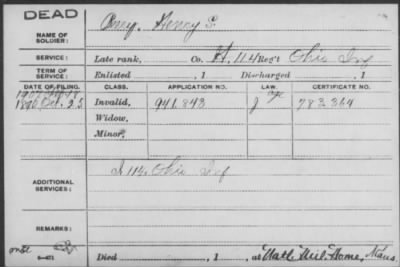 DEAD
NAME OF SOLDIER:
Henry S.
SERVICE:
Late rank, Co. H, 114 Reg't Ohio Inf
TERM OF SERVICE:
Enlisted , 1 Discharged , 1
DATE OF FILING. CLASS. APPLICATION NO. LAW. CERTIFICATE NO.
1890 Oct. 25 Invalid, 941.843 J 783.364
Widow,
Minor,
ADDITIONAL SERVICES:
Ohio Inf
REMARKS:
Died , 1 , at Natl. Mil. Home, Kans.